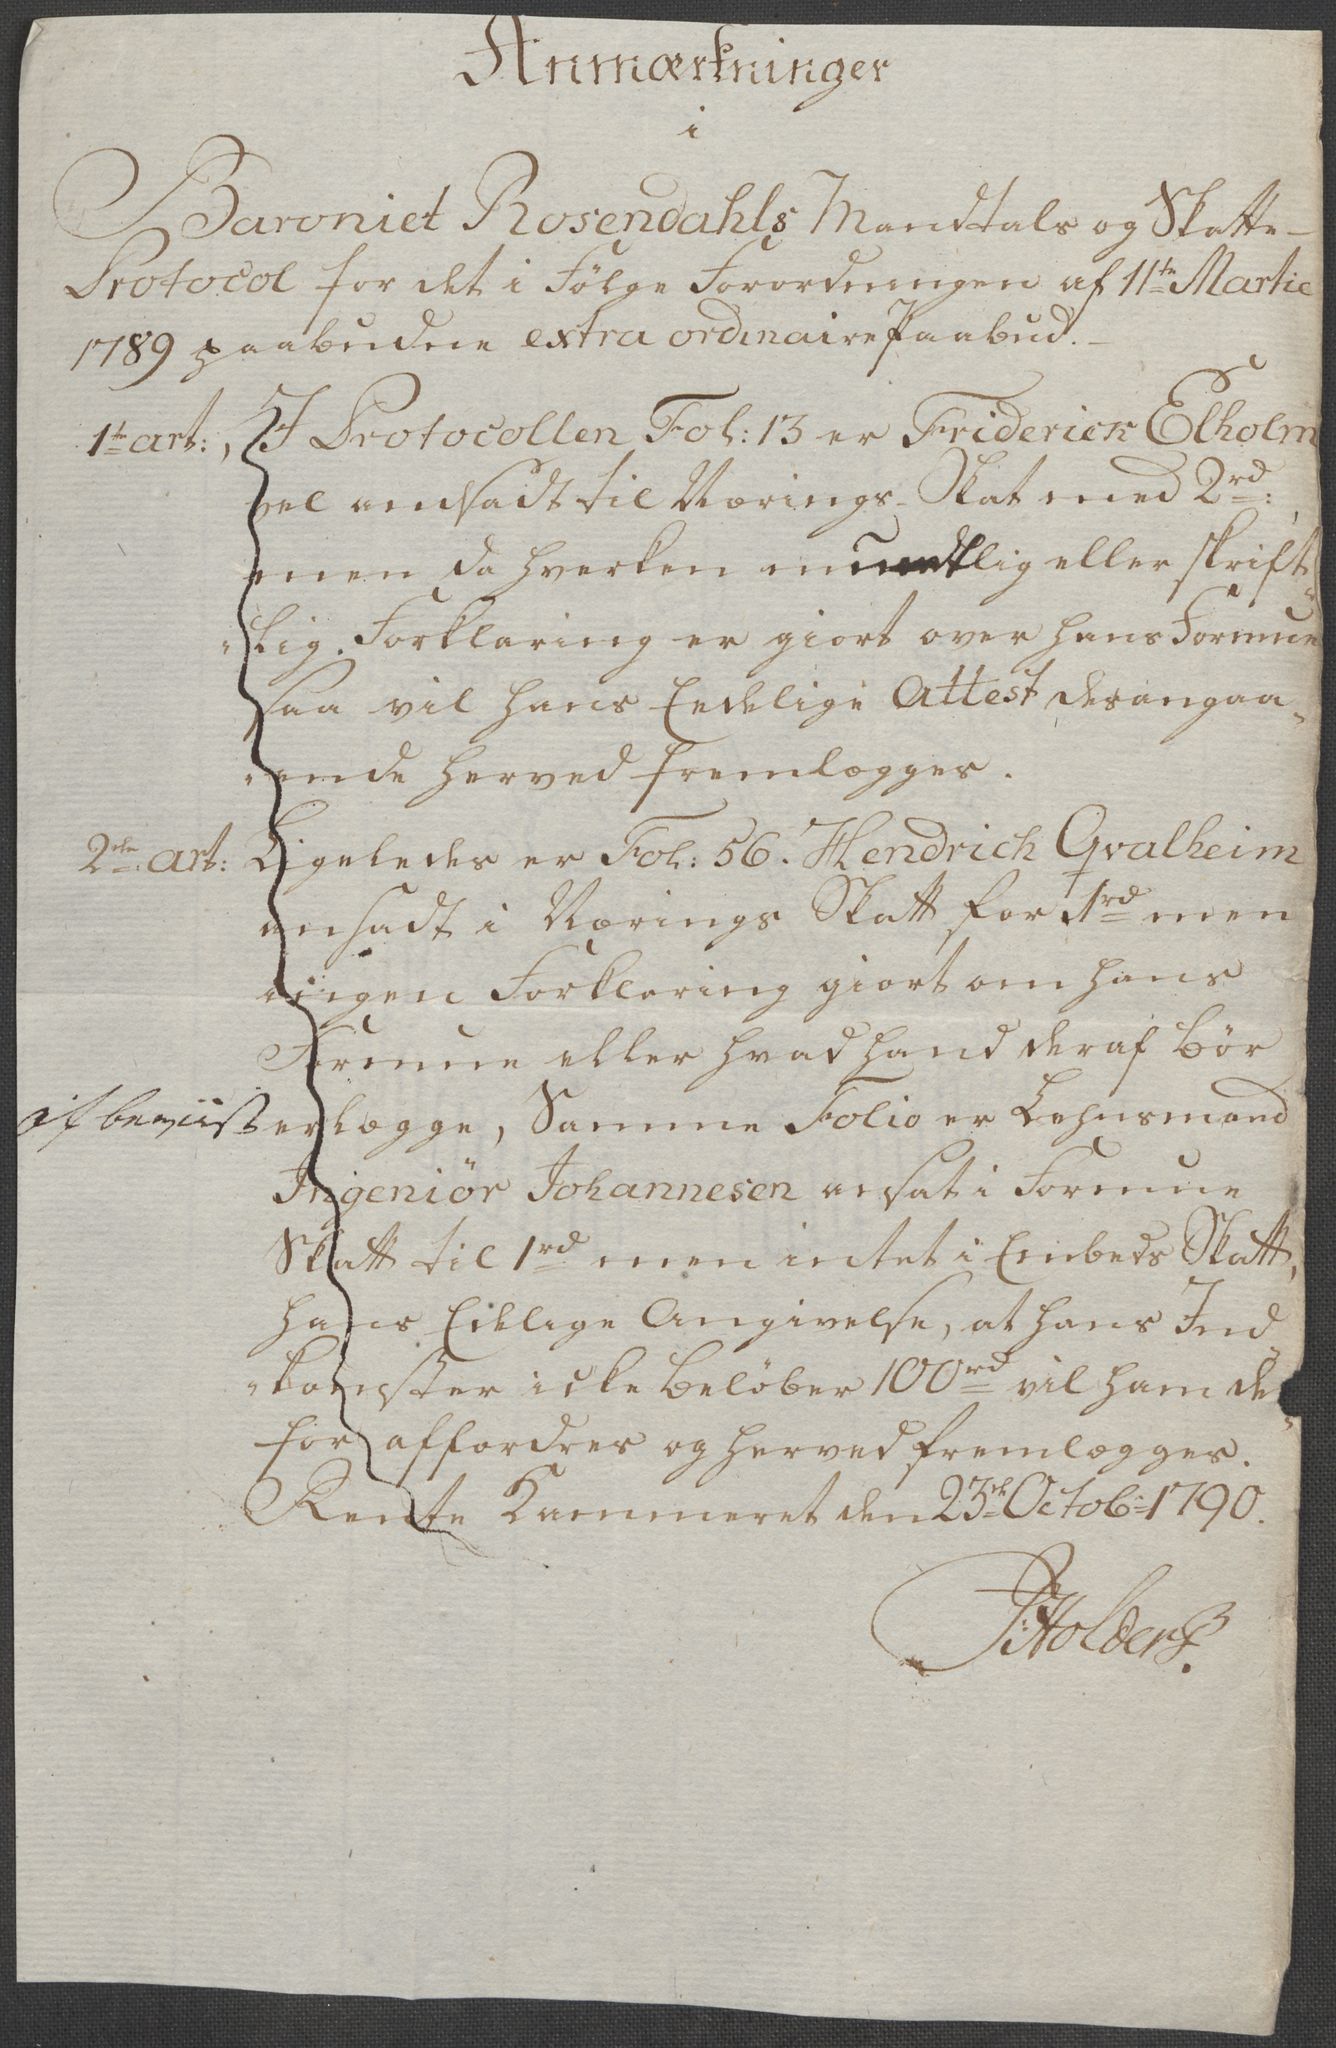 Anmærkninger
i
Baroniet Rosendahls Mandtals og Skatte-
Protocol for det i Følge Forordningen af 11te Martie
1789 paabudne extra ordinaire Paabud. -
1te art:, I Protocollen Fol: 13 er Friderick Elholm
vel ansadt til Nærings-Skat med 2rd:
men da hverken mundtlig eller skrift-
-lig Forklaring er giort over hans Formue
saa vil hans Eedelige Attest desangaa-
-ende herved fremlægges.
2den art: Ligeledes er Fol: 56. Hendrich Qvalheim
ansadt i Nærings Skatt for 1rd men
ingen Forklaring giort om hans
Formue eller hvad hand deraf bør
erlægge, Samme Folio er Lehnsmand
Ingeniør Johannesen ansat i Formue
Skatt til 1rd men intet i Embeds Skatt,
hans Edelige Angivelse, at hans Ind-
-komster icke beløber 100rd vil ham de-
for affordres og herved fremlægges.
Rente Kammeret den 23de Octob: 1790.